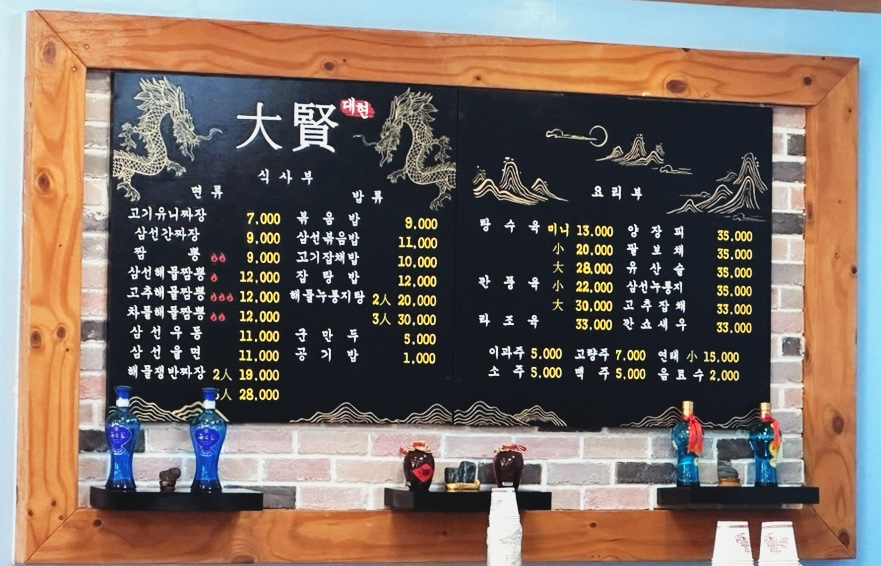 大賢 대현
식사부
면류
고기유니짜장 7,000
삼선간짜장 9,000
짬 뽕 9,000
삼선해물짬뽕 12,000
고추해물짬뽕 12,000
차돌해물짬뽕 12,000
삼 선 우 동 11,000
삼 선 울 면 11,000
해물쟁반짜장 2人 19,000
人 28,000
밥류
볶 음 밥 9,000
삼선볶음밥 11,000
고기잡채밥 10,000
잡 탕 밥 12,000
해물누룽지탕 2人 20,000
3人 30,000
군 만 두 5,000
공 기 밥 1,000
요리부
탕 수 육 미니 13,000
小 20,000
大 28,000
깐 풍 육 小 22,000
大 30,000
라 조 육 33,000
양 장 피 35,000
팔 보 채 35,000
유 산 슬 35,000
삼선누룽지 35,000
고 추 잡 채 33,000
깐 쇼 새 우 33,000
이과주 5,000 고량주 7,000 연태 小 15,000
소 주 5,000 맥 주 5,000 음료수 2,000